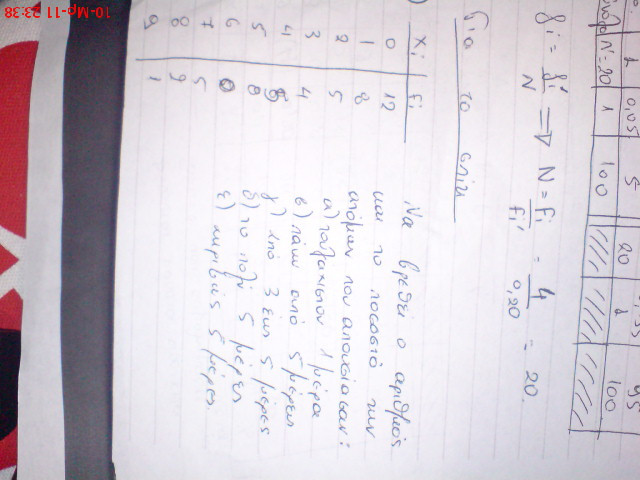 1 0,05 5 20 1 100
N=20 1 100
fi' = fi/N ⇒ N = Fi/fi' = 4/0,20 = 20.
Για το σπίτι
Xi Fi
0 12
1 8
2 5
3 4
4 5
5 8
6 0
7 5
8 9
9 1
Να βρεθεί ο αριθμός
και το ποσοστό των
ατόμων που απουσίασαν:
α) τουλάχιστον 1 μέρα
β) πάνω από 5 μέρες
γ) από 3 έως 5 μέρες
δ) το πολύ 5 μέρες
ε) ακριβώς 5 μέρες.
10-Μρ-11 23:38